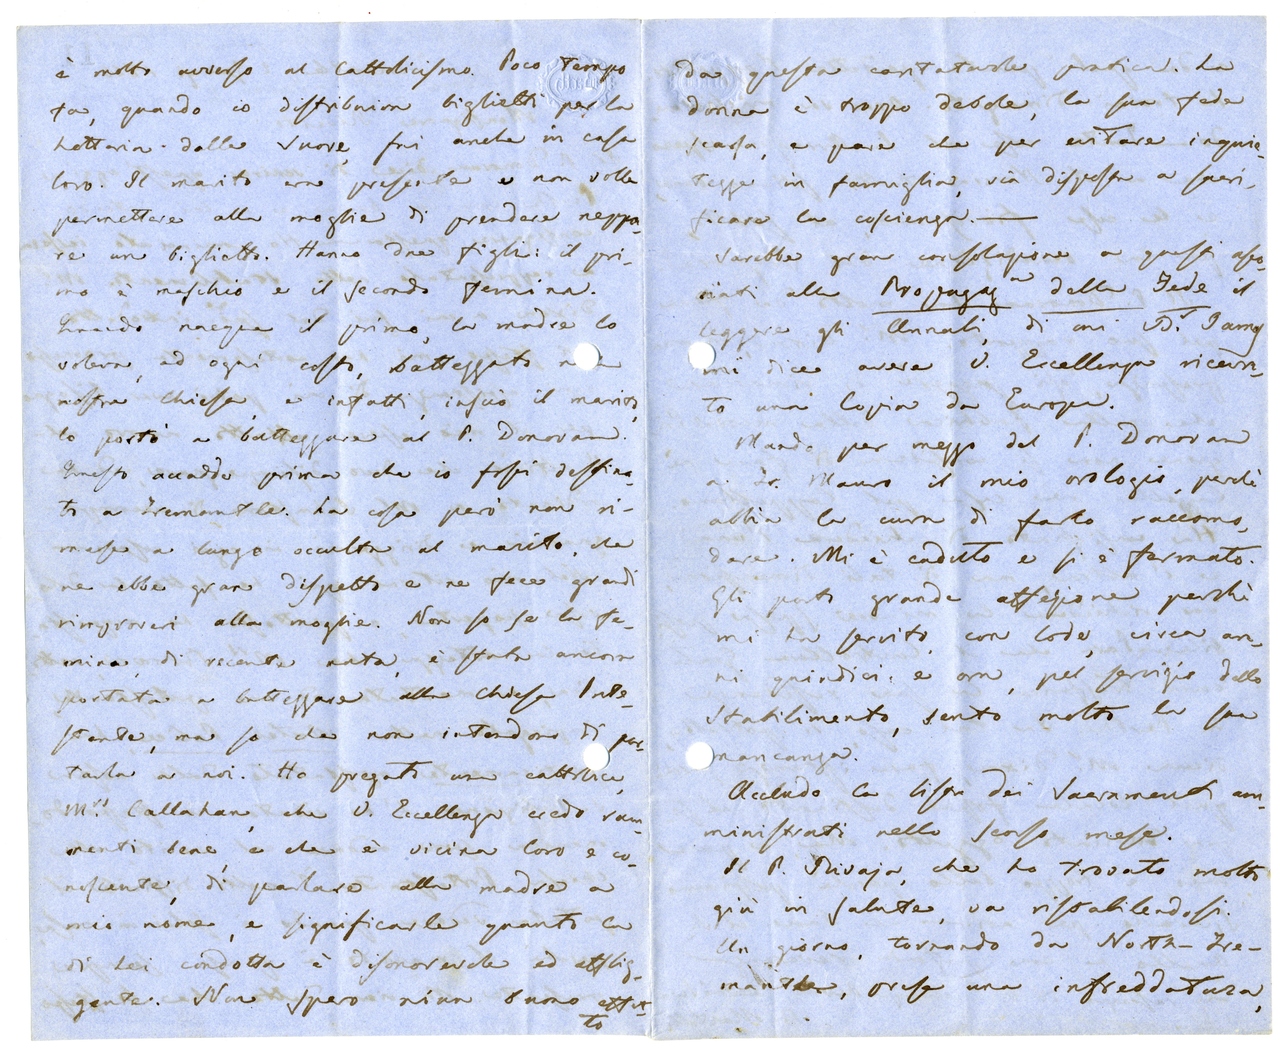 è molto avverso al Cattolicismo. Poco tempo
fa, quando io distribuiva biglietti per la
Lotteria delle Suore, fui anche in casa
loro. Il marito era presente e non volle
permettere alla moglie di prendere neppu-
re un biglietto. Hanno due figli: il pri-
mo è maschio e il secondo femina.
Quando nacque il primo, la madre lo
voleva, ad ogni costo, battezzato nella
nostra Chiesa, e infatti, inscio il marito,
lo portò a battezzare al P. Donovan.
Questo accadde prima che io fossi destina-
to a Fremantle. La cosa però non ri-
mase a lungo occulta al marito, che
ne ebbe gran dispetto e ne fece grandi
rimproveri alla moglie. Non so se la fe-
mina, di recente nata, è stata ancora
portata a battezzare alla Chiesa Prote-
stante, ma so che non intendono di por-
tarla a noi. Ho pregato una cattolica,
Mrs. Callahan, che V. Eccellenza credo ram-
menti bene, e che è vicina loro e co-
noscente, di parlare alla madre a
mio nome, e significarle quanto la
di Lei condotta è disonorevole ed afflig-
gente. Non spero niun buono effet-
to
da questa caritatevole pratica. La
donna è troppo debole, la sua fede
scarsa, e pare che per evitare inquie-
tezze in famiglia, sia disposta a sacri-
ficare la coscienza.—
Sarebbe gran consolazione a questi asso-
ciati alla Propagazne della Fede il
leggere gli Annali, di cui Dr. James
mi dice avere V. Eccellenza ricevu-
to una Copia da Europa.
Mando per mezzo del P. Donovan
a Fr. Mauro il mio orologio, perchè
abbia la cura di farlo raccomo-
dare. Mi è caduto e si è fermato.
Gli porto grande affezione perchè
mi ha servito, con lode, circa an-
ni quindici: e ora, pel servizio dello
Stabilimento, sento molto la sua
mancanza.
Accludo la lista dei Sacramenti am-
ministrati nello scorso mese.
Il P. Rivaja, che ho trovato molto
giù in salute, va ristabilendosi.
Un giorno, tornando da North-Fre-
mantle, prese una infreddatura,